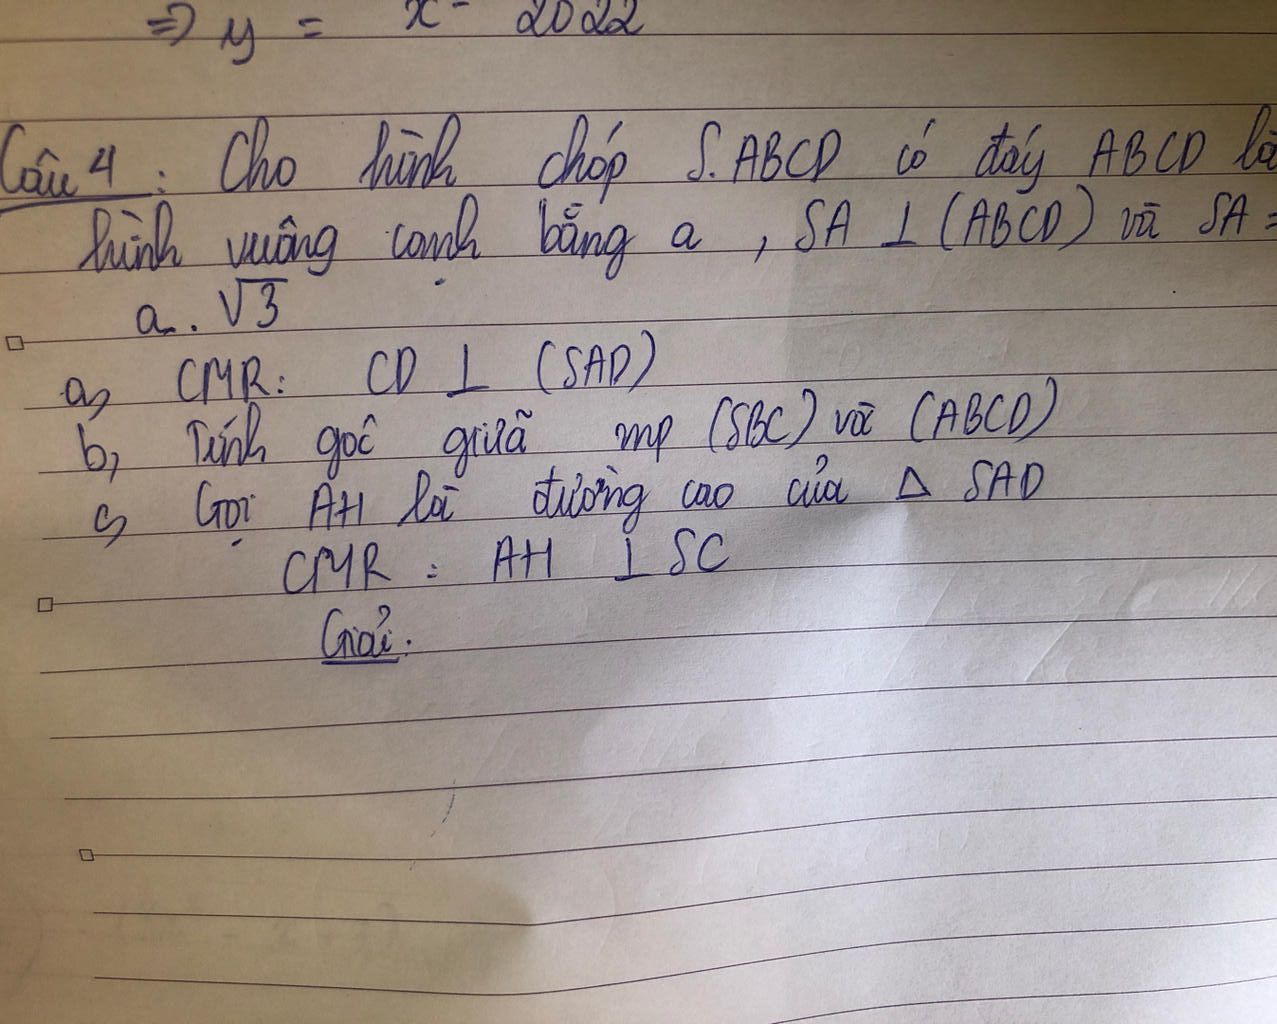 => y = x - 2022
Câu 4 : Cho hình chóp S.ABCD có đáy ABCD là
hình vuông cạnh bằng a , SA ⊥ (ABCD) và SA =
a.√3
a, CMR: CD ⊥ (SAD)
b, Tính góc giữa mp (SBC) và (ABCD)
c, Gọi AH là đường cao của Δ SAD
CMR : AH ⊥ SC
Giải: